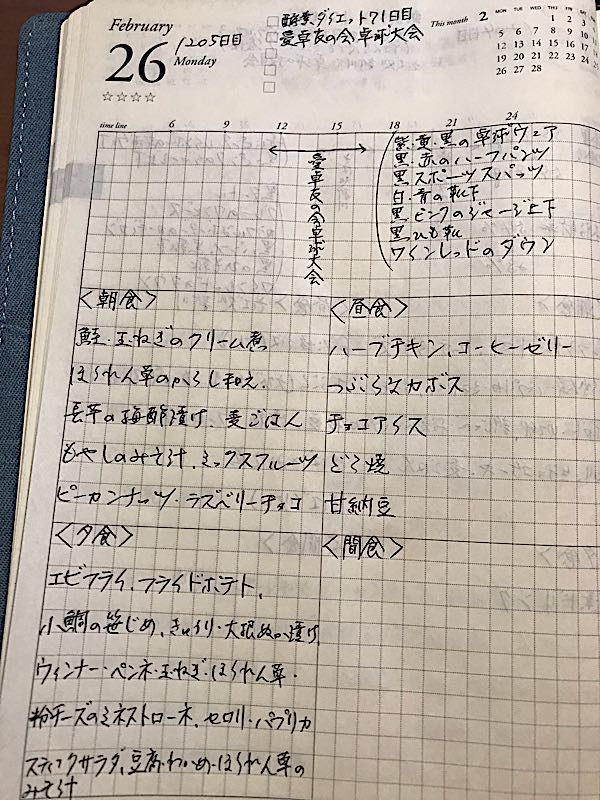 February
26
Monday
1205日目
☆☆☆☆
酵素ダイエット71日目
愛卓友の会卓球大会
This month 2
MON TUE WED THU FRI
1 2
5 6 7 8 9
12 13 14 15 16
19 20 21 22 23
26 27 28
time line 6 9 12 15 18 21 24
愛卓友の会卓球大会
紫・黄・黒の卓球ウェア
黒・赤のハーフパンツ
黒スポーツスパッツ
白・青の靴下
黒・ピンクのジャージ上下
黒ひも靴
ワインレッドのダウン
<朝食>
鮭・玉ねぎのクリーム煮
ほうれん草のからし和え、
長芋の梅酢漬け、麦ごはん
もやしのみそ汁、ミックスフルーツ
ピーカンナッツ・ラズベリーチョコ
<昼食>
ハーブチキン、コーヒーゼリー
つぶらなカボス
チョコアイス
どら焼
甘納豆
<夕食>
エビフライ、フライドポテト、
小鯛の笹じめ、きゅうり・大根ぬか漬け
ウィンナー・ペンネ・玉ねぎ・ほうれん草・
粉チーズのミネストローネ、セロリ・パプリカ
スティックサラダ、豆腐・わかめ・ほうれん草の
みそ汁
<間食>